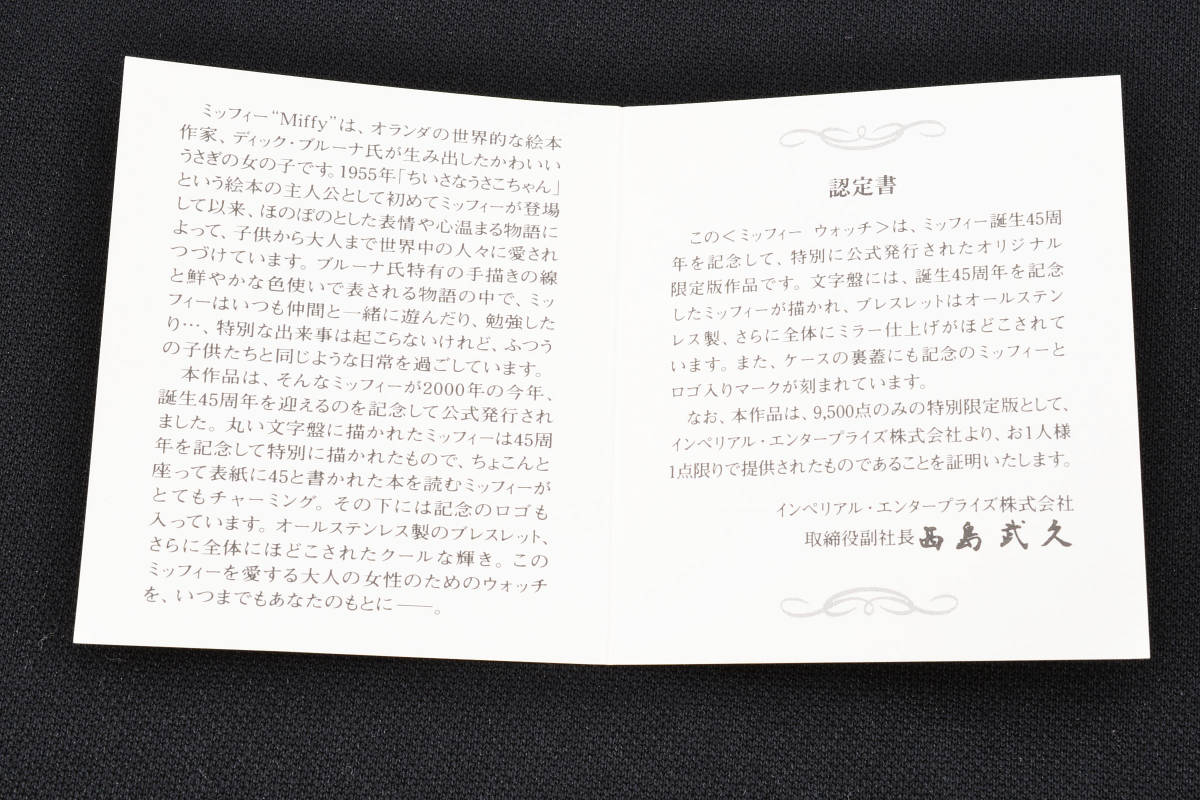 ミッフィー“Miffy”は、オランダの世界的な絵本
作家、ディック・ブルーナ氏が生み出したかわいい
うさぎの女の子です。1955年「ちいさなうさこちゃん」
という絵本の主人公として初めてミッフィーが登場
して以来、ほのぼのとした表情や心温まる物語に
よって、子供から大人まで世界中の人々に愛され
つづけています。ブルーナ氏特有の手描きの線
と鮮やかな色使いで表される物語の中で、ミッ
フィーはいつも仲間と一緒に遊んだり、勉強した
り…、特別な出来事は起こらないけれど、ふつう
の子供たちと同じような日常を過ごしています。
本作品は、そんなミッフィーが2000年の今年、
誕生45周年を迎えるのを記念して公式発行され
ました。丸い文字盤に描かれたミッフィーは45周
年を記念して特別に描かれたもので、ちょこんと
座って表紙に45と書かれた本を読むミッフィーが
とてもチャーミング。その下には記念のロゴも
入っています。オールステンレス製のブレスレット、
さらに全体にほどこされたクールな輝き。この
ミッフィーを愛する大人の女性のためのウォッチ
を、いつまでもあなたのもとに――。
認定書
この＜ミッフィー ウォッチ＞は、ミッフィー誕生45周
年を記念して、特別に公式発行されたオリジナル
限定版作品です。文字盤には、誕生45周年を記念
したミッフィーが描かれ、ブレスレットはオールステン
レス製、さらに全体にミラー仕上げがほどこされて
います。また、ケースの裏蓋にも記念のミッフィーと
ロゴ入りマークが刻まれています。
なお、本作品は、9,500点のみの特別限定版として、
インペリアル・エンタープライズ株式会社より、お1人様
1点限りで提供されたものであることを証明いたします。
インペリアル・エンタープライズ株式会社
取締役副社長 西島武久